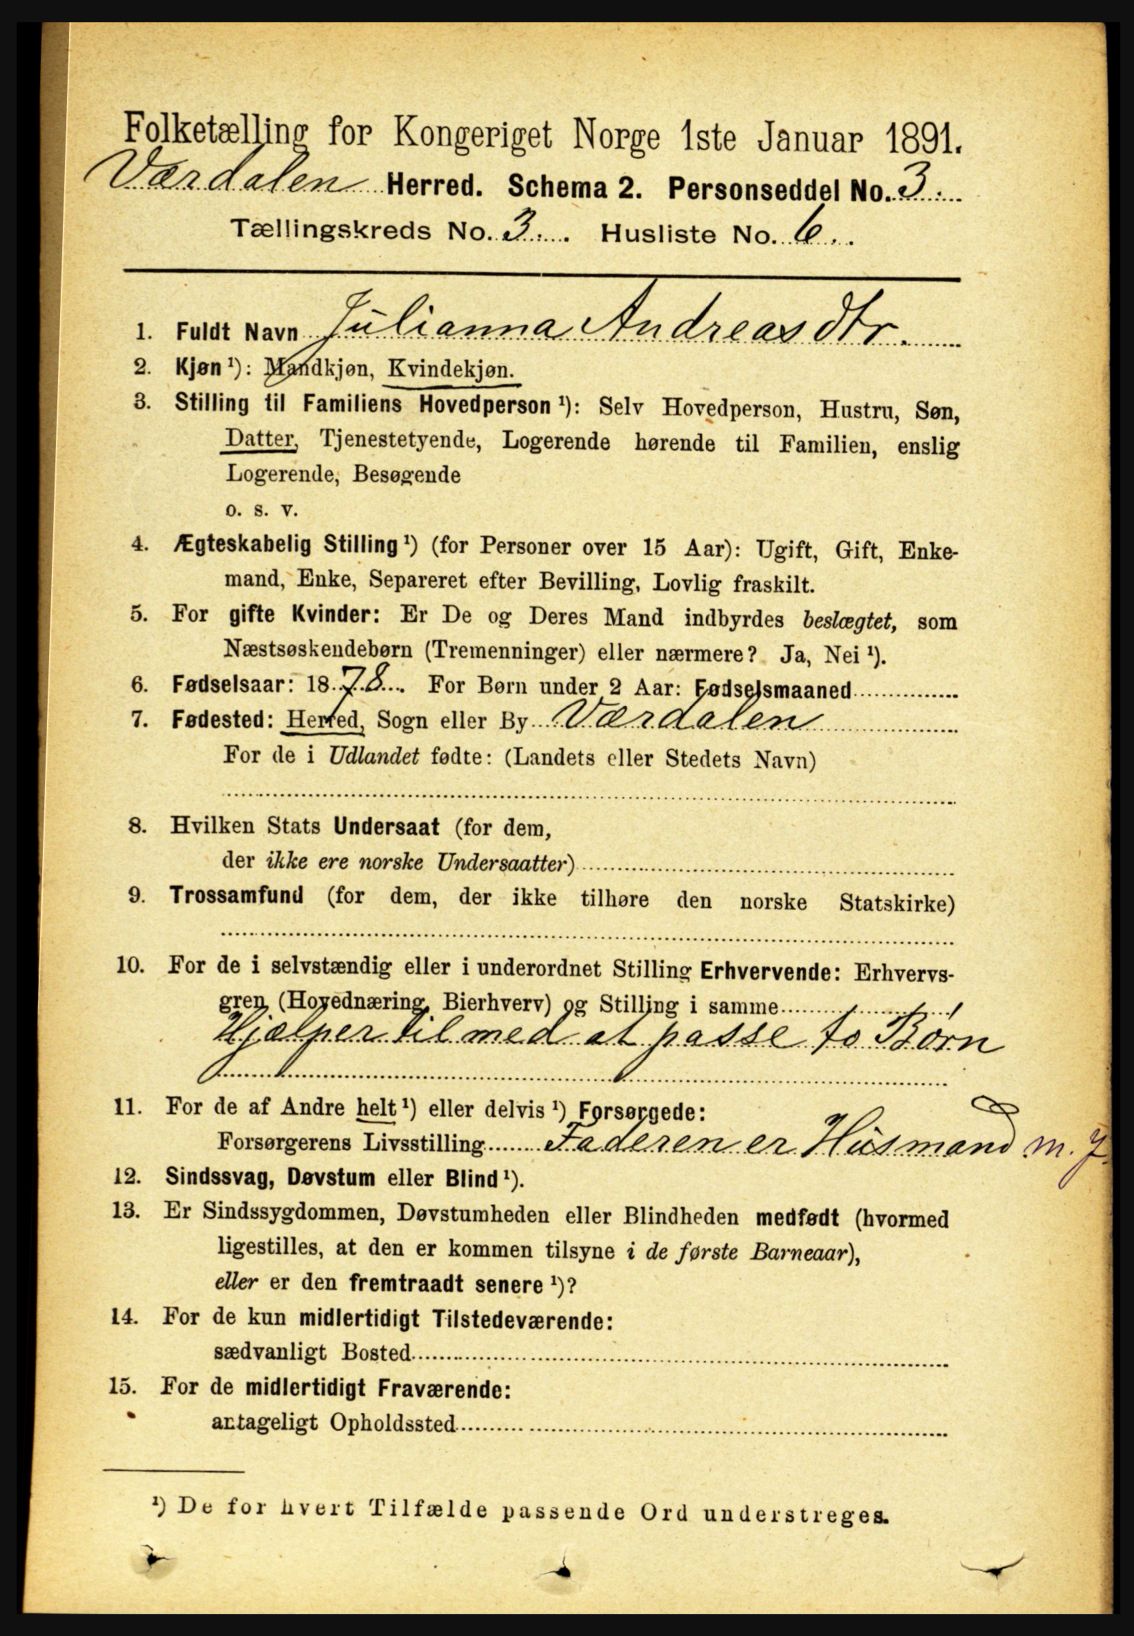 Folketælling for Kongeriget Norge 1ste Januar 1891.
Værdalen Herred. Schema 2. Personseddel No. 3.
Tællingskreds No. 3. Husliste No. 6.
1. Fuldt Navn Julianna Andreasdtr.
2. Kjøn ¹): Mandkjøn, Kvindekjøn.
3. Stilling til Familiens Hovedperson ¹): Selv Hovedperson, Hustru, Søn,
Datter, Tjenestetyende, Logerende hørende til Familien, enslig
Logerende, Besøgende
o. s. v.
4. Ægteskabelig Stilling ¹) (for Personer over 15 Aar): Ugift, Gift, Enke-
mand, Enke, Separeret efter Bevilling, Lovlig fraskilt.
5. For gifte Kvinder: Er De og Deres Mand indbyrdes beslægtet, som
Næstsøskendebørn (Tremenninger) eller nærmere? Ja, Nei ¹).
6. Fødselsaar: 1878. For Børn under 2 Aar: Fødselsmaaned
7. Fødested: Herred, Sogn eller By Værdalen
For de i Udlandet fødte: (Landets eller Stedets Navn)
8. Hvilken Stats Undersaat (for dem,
der ikke ere norske Undersaatter)
9. Trossamfund (for dem, der ikke tilhøre den norske Statskirke)
10. For de i selvstændig eller i underordnet Stilling Erhvervende: Erhvervs-
gren (Hovednæring, Bierhverv) og Stilling i samme
Hjælper til med at passe to Børn
11. For de af Andre helt ¹) eller delvis ¹) Forsørgede:
Forsørgerens Livsstilling Faderen er Husmand m. J.
12. Sindssvag, Døvstum eller Blind ¹).
13. Er Sindssygdommen, Døvstumheden eller Blindheden medfødt (hvormed
ligestilles, at den er kommen tilsyne i de første Barneaar),
eller er den fremtraadt senere ¹)?
14. For de kun midlertidigt Tilstedeværende:
sædvanligt Bosted
15. For de midlertidigt Fraværende:
antageligt Opholdssted
¹) De for hvert Tilfælde passende Ord understreges.